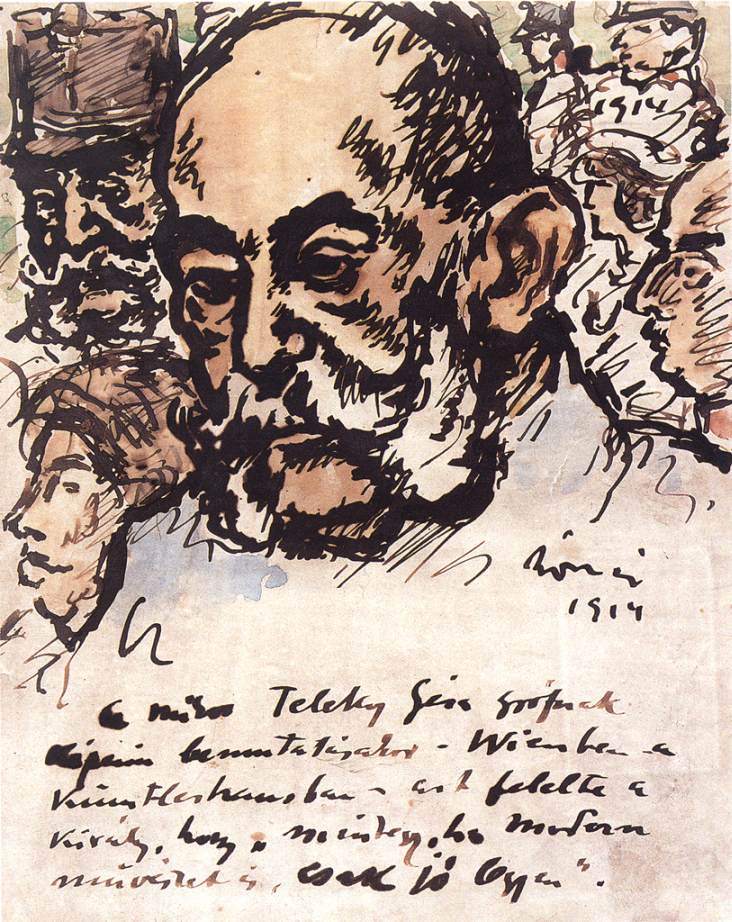 1914
Rónai
1914
A mikor Teleky Géza grófnak
képeim bemutatásakor - Wienben a
Künstlerhausban - azt felelte a
király, hogy „mindegy, ha modern
művészet is, csak jó legyen”.